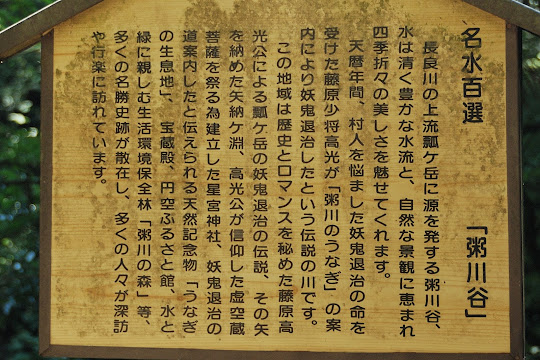 名水百選 「粥川谷」
長良川の上流瓢ケ岳に源を発する粥川谷、
水は清く豊かな水流と、自然な景観に恵まれ
四季折々の美しさを魅せてくれます。
天暦年間、村人を悩ました妖鬼退治の命を
受けた藤原少将高光が「粥川のうなぎ」の案
内により妖鬼退治したという伝説の川です。
この地域は歴史とロマンスを秘めた藤原高
光公による瓢ケ岳の妖鬼退治の伝説、その矢
を納めた矢納ケ淵、高光公が信仰した虚空蔵
菩薩を祭る為建立した星宮神社、妖鬼退治の
道案内したと伝えられる天然記念物「うなぎ
の生息地」、宝蔵殿、円空ふるさと館、水と
緑に親しむ生活環境保全林「粥川の森」等、
多くの名勝史跡が散在し、多くの人々が探訪
や行楽に訪れています。